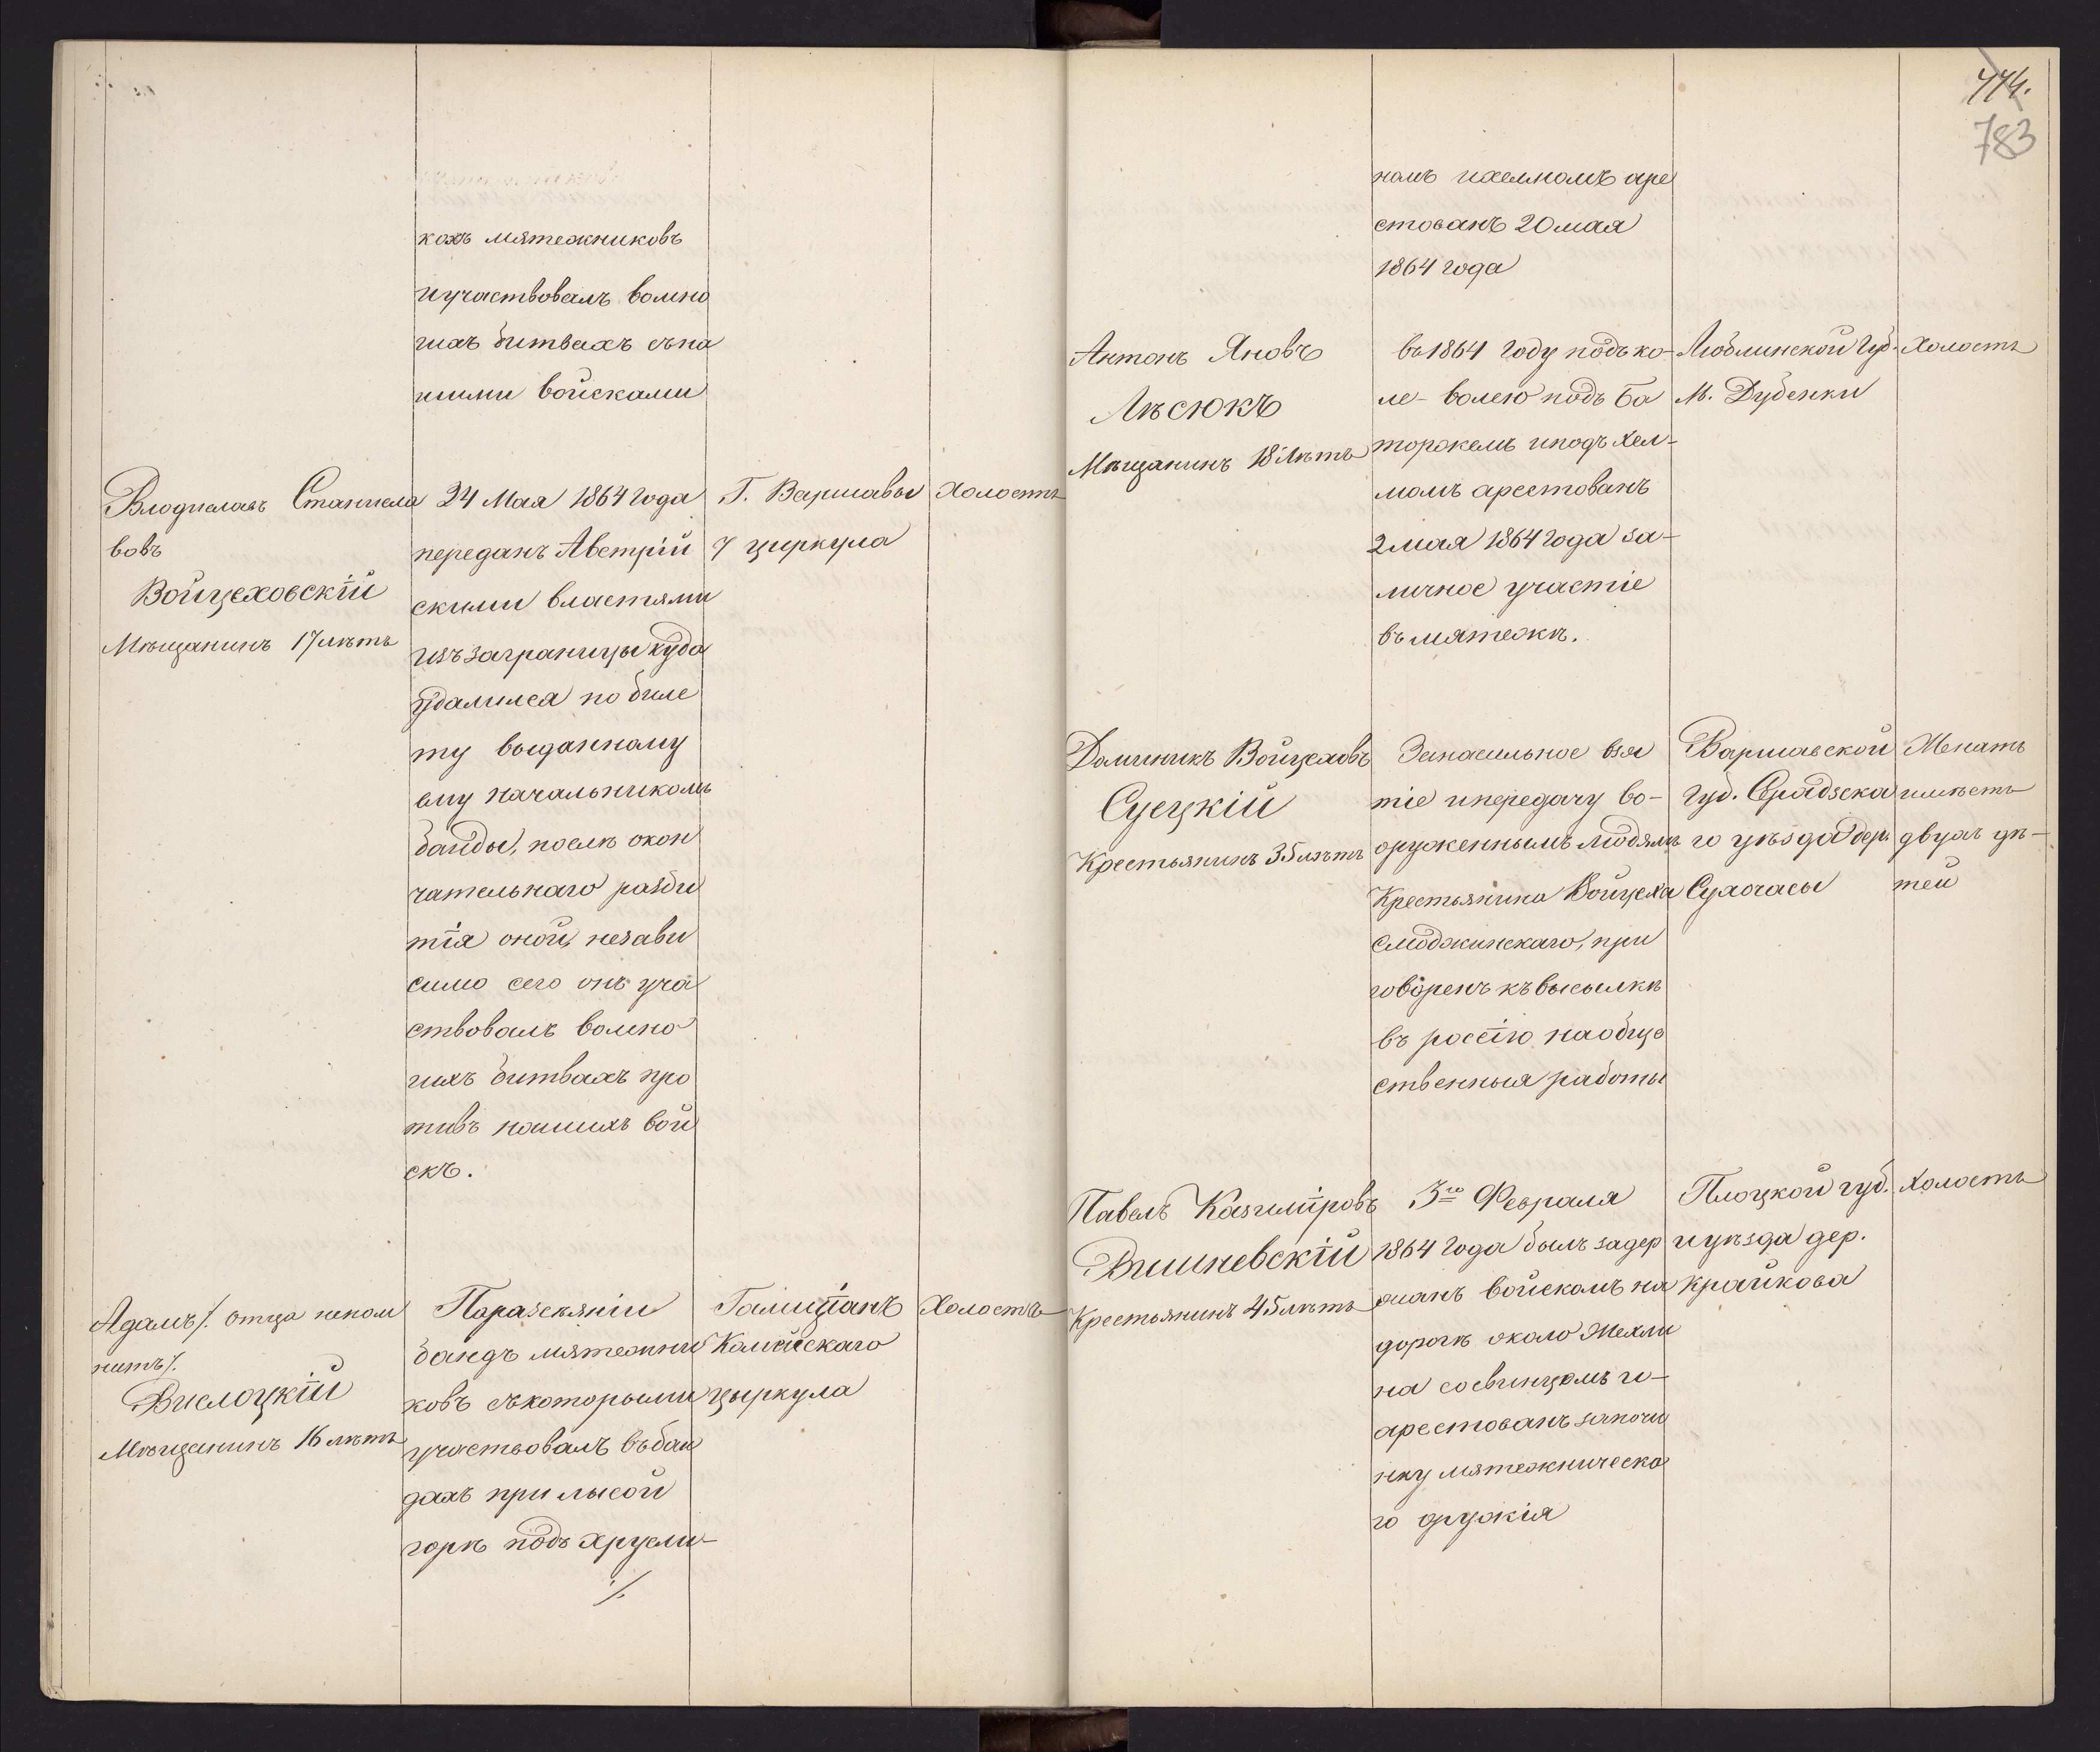 кахъ мятежниковъ
и участвовалъ во мно
гихъ битвахъ съ на
шими войсками
Владиславъ Станисла
вовъ
Войцеховскій
Мѣщанинъ 17 лѣтъ
24 Мая 1864 года
переданъ Австрій
скими властями
изъ заграницы куда
удалился по биле
ту выданному
ему начальникомъ
банды, послѣ окон
чательнаго разби
тія оной, незави
симо сего онъ уча
ствовалъ во мно
гихъ битвахъ про
тивъ нашихъ вой
скъ.
Г. Варшавы
7 циркула
Холостъ
Адамъ /. отца непом
нитъ /.
Вислоцкій
Мѣщанинъ 16 лѣтъ
По разсѣяніи
бандъ мятежни
ковъ съ которыми
участвовалъ въ бан
дахъ при лысой
горѣ подъ Хрусли-
./.
Галиціанъ
цыркула
Холостъ
774.
783
номъ и хелмомъ аре
стованъ 20 мая
1864 года
Антонъ Яновъ
Лѣсюкъ
Мѣщанинъ 18 лѣтъ
въ 1864 году подъ ко-
ле-волею подъ Ба
торжемъ и подъ Хел-
момъ арестованъ
2 мая 1864 года за-
личное участіе
въ мятежѣ.
Люблинской Губ.
М. Дубенки
Холостъ
Доминикъ Войцеховъ
Суецкій
Крестьянинъ 35 лѣтъ
За насильное взя
тіе и передачу во-
оруженнымъ людямъ
Крестьянина Войцеха
Смоджинскаго, при
говоренъ къ высылкѣ
въ россію на обще
ственныя работы
Варшавской
Губ. Сѣрадзска
го уѣзда дер.
Сухочасы
Женатъ
имѣетъ
двухъ дѣ-
тей
Павелъ Казиміровъ
Вишневскій
Крестьянинъ 45 лѣтъ
3го Февраля
1864 года былъ задер
жанъ войскомъ на
дорогѣ около Мехли
на со свинцомъ и-
арестованъ за почи
нку мятежническа
го оружія
Плоцкой губ.
и уѣзда дер.
Крайкова
Холостъ